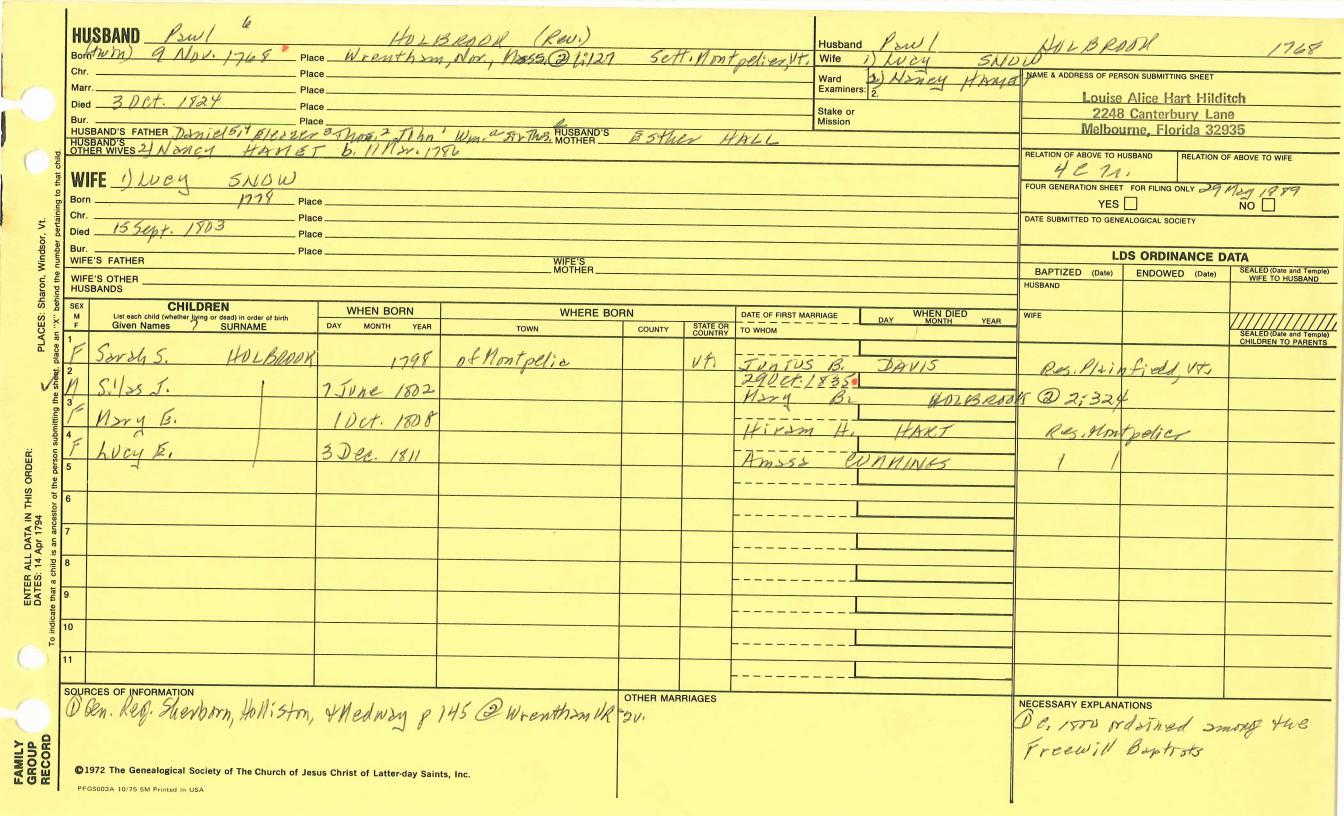 HUSBAND Paul 6 HOLBROOK (Rev.)
Born (twin) 9 Nov. 1768 Place Wrentham, Nor., Mass. @ 1:127 Sett. Montpelier, Vt.
Chr. Place
Marr. Place
Died 3 Oct. 1824 Place
Bur. Place
HUSBAND'S FATHER Daniel 5,4 Eleazer 3 Thos. 2 John 1 Wm. HUSBAND'S MOTHER Esther HALL
HUSBAND'S OTHER WIVES 2) Nancy HAMET b. 11 Mar. 1786
WIFE 1) Lucy SNOW
Born 1778 Place
Chr. Place
Died 15 Sept. 1803 Place
Bur. Place
WIFE'S FATHER WIFE'S MOTHER
WIFE'S OTHER HUSBANDS
Husband Paul HOLBROOK 1768
Wife 1) Lucy SNOW
Ward Examiners: 2) Nancy HAMET
2.
Stake or Mission
NAME & ADDRESS OF PERSON SUBMITTING SHEET
Louise Alice Hart Hilditch
2248 Canterbury Lane
Melbourne, Florida 32935
RELATION OF ABOVE TO HUSBAND RELATION OF ABOVE TO WIFE
4 C
FOUR GENERATION SHEET FOR FILING ONLY 29 May 1989
YES NO
DATE SUBMITTED TO GENEALOGICAL SOCIETY
LDS ORDINANCE DATA
BAPTIZED (Date) ENDOWED (Date) SEALED (Date and Temple) WIFE TO HUSBAND
HUSBAND
WIFE
SEALED (Date and Temple) CHILDREN TO PARENTS
SEX M F
CHILDREN
List each child (whether living or dead) in order of birth
Given Names SURNAME
WHEN BORN
DAY MONTH YEAR
WHERE BORN
TOWN COUNTY STATE OR COUNTRY
DATE OF FIRST MARRIAGE
TO WHOM
WHEN DIED
DAY MONTH YEAR
1 F Sarah S. HOLBROOK 1798 of Montpelie Vt. Junius B. DAVIS Res. Plainfield, Vt.
2 M Silas J. 7 June 1802 29 Oct. 1835 Mary B. HOLBROOK @ 2:324
3 F Mary E. 1 Oct. 1808 Hiram H. HART Res. Montpelier
4 F Lucy E. 3 Dec. 1811 Amasa CUMMINGS
5
6
7
8
9
10
11
SOURCES OF INFORMATION
① Gen. Reg. Sherborn, Holliston, & Medway p 145 ② Wrentham VR 2v.
OTHER MARRIAGES
NECESSARY EXPLANATIONS
① c. 1800 ordained among the
Freewill Baptists
©1972 The Genealogical Society of The Church of Jesus Christ of Latter-day Saints, Inc.
PFGS002A 10/75 5M Printed in USA
FAMILY GROUP RECORD
ENTER ALL DATA IN THIS ORDER:
DATES: 14 Apr 1794
PLACES: Sharon, Windsor, Vt.
To indicate that a child is an ancestor of the person submitting the sheet, place an "X" behind the number pertaining to that child.